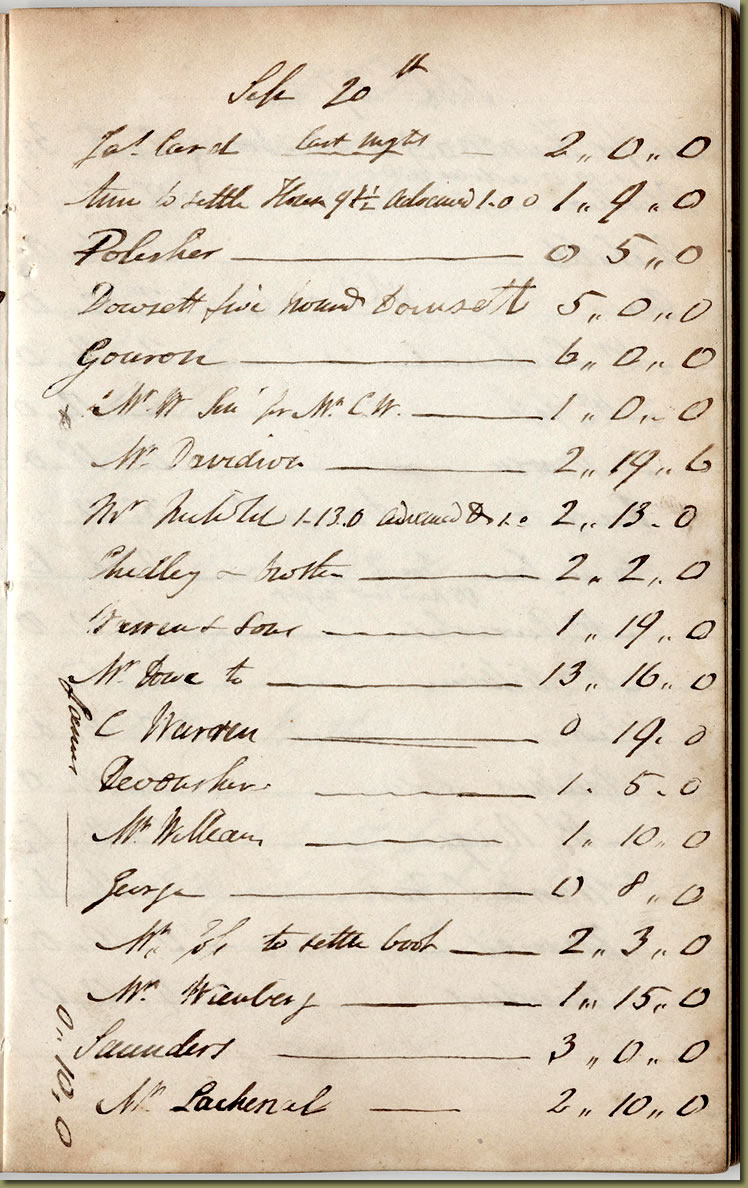 Sep 20th
Jas. Card last night 2 „ 0 „ 0
to settle 9½ advanced 1-0 0 1 „ 9 „ 0
Polisher 0 5 „ 0
Dowsett five pound Dowsett 5 „ 0 „ 0
Gouron 6 „ 0 „ 0
Mr. W Sen for Mr. C.W. 1 „ 0 „ 0
Mr. Davidson 2 „ 19 „ 6
Mr 1-13.0 advanced 1.0 2 „ 13 - 0
Chidley & brother 2 „ 2 „ 0
Warren & Son 1 „ 19 „ 0
Mr. Dove to 13 „ 16 „ 0
C Warren 0 19. 0
Devonshire 1. 5. 0
Mr. William 1, 10 „ 0
George 0 8 „ 0
Mr. to settle book 2 „ 3 „ 0
Mr. Wienberg 1 „ 15 „ 0
Saunders 3 „ 0 „ 0
Mr. Lachenal 2 „ 10 „ 0
0 „ 10, 0